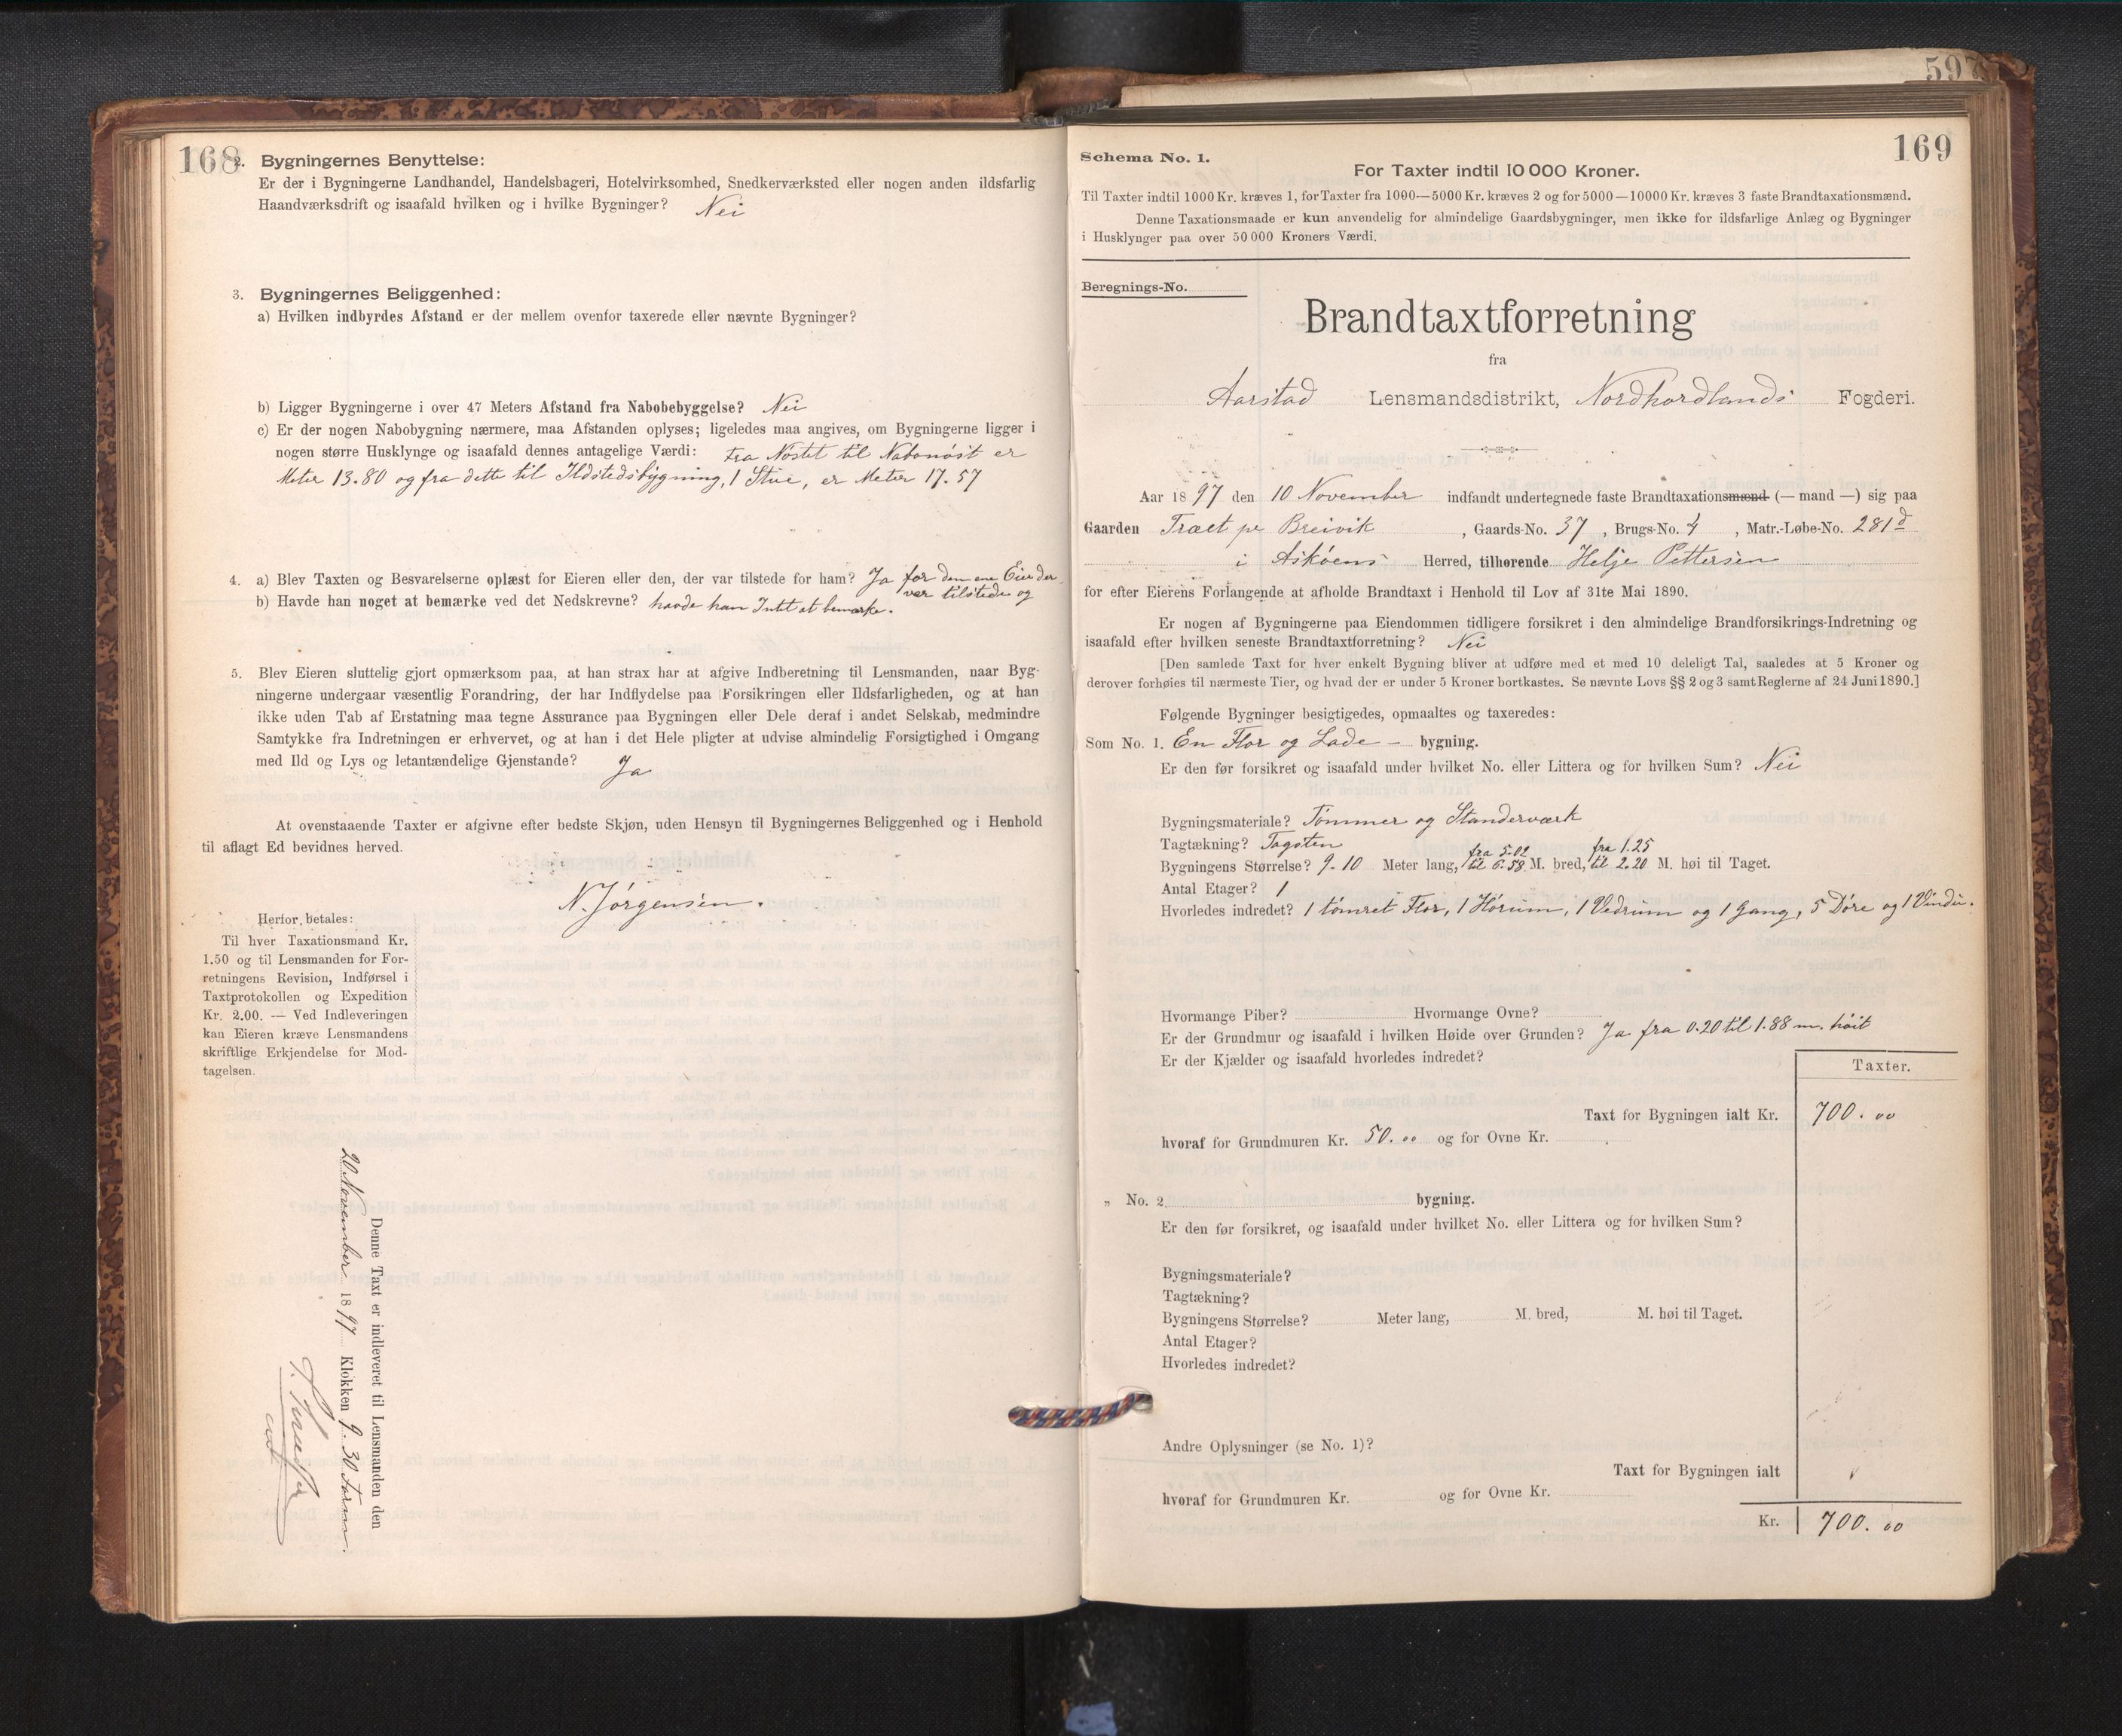 168
2. Bygningernes Benyttelse:
Er der i Bygningerne Landhandel, Handelsbageri, Hotelvirksomhed, Snedkerværksted eller nogen anden ildsfarlig
Haandværksdrift og isaafald hvilken og i hvilke Bygninger? Nei
3. Bygningernes Beliggenhed:
a) Hvilken indbyrdes Afstand er der mellem ovenfor taxerede eller nævnte Bygninger?
b) Ligger Bygningerne i over 47 Meters Afstand fra Nabobebyggelse? Nei
c) Er der nogen Nabobygning nærmere, maa Afstanden oplyses; ligeledes maa angives, om Bygningerne ligger i
nogen større Husklynge og isaafald dennes antagelige Værdi: fra Nøstet til Nabonøst er
Meter 13.80 og fra dette til Ildstedsbygning, 1 Stue, er Meter 17.57
4. a) Blev Taxten og Besvarelserne oplæst for Eieren eller den, der var tilstede for ham? Ja for den ene Eier der
var tilstede og
b) Havde han noget at bemærke ved det Nedskrevne? havde han Intet at bemærke.
5. Blev Eieren sluttelig gjort opmærksom paa, at han strax har at afgive Indberetning til Lensmanden, naar Byg-
ningerne undergaar væsentlig Forandring, der har Indflydelse paa Forsikringen eller Ildsfarligheden, og at han
ikke uden Tab af Erstatning maa tegne Assurance paa Bygningen eller Dele deraf i andet Selskab, medmindre
Samtykke fra Indretningen er erhvervet, og at han i det Hele pligter at udvise almindelig Forsigtighed i Omgang
med Ild og Lys og letantændelige Gjenstande? Ja
At ovenstaaende Taxter er afgivne efter bedste Skjøn, uden Hensyn til Bygningernes Beliggenhed og i Henhold
til aflagt Ed bevidnes herved.
N. Jørgensen.
Herfor betales:
Til hver Taxationsmand Kr.
1.50 og til Lensmanden for For-
retningens Revision, Indførsel i
Taxtprotokollen og Expedition
Kr. 2.00. — Ved Indleveringen
kan Eieren kræve Lensmandens
skriftlige Erkjendelse for Mod-
tagelsen.
Denne Taxt er indleveret til Lensmanden den
20 November 1897 Klokken 9.30 Form.
597
169
Schema No. 1.
For Taxter indtil 10 000 Kroner.
Til Taxter indtil 1000 Kr. kræves 1, for Taxter fra 1000—5000 Kr. kræves 2 og for 5000—10000 Kr. kræves 3 faste Brandtaxationsmænd.
Denne Taxationsmaade er kun anvendelig for almindelige Gaardsbygninger, men ikke for ildsfarlige Anlæg og Bygninger
i Husklynger paa over 50 000 Kroners Værdi.
Beregnings-No.
Brandtaxtforretning
fra
Aarstad Lensmandsdistrikt, Nordhordlands Fogderi.
Aar 1897 den 10 November indfandt undertegnede faste Brandtaxationsmænd (— mand —) sig paa
Gaarden Træet pr Breivik, Gaards-No. 37, Brugs-No. 4, Matr.-Løbe-No. 281 d
i Askøens Herred, tilhørende Helje Pettersen
for efter Eierens Forlangende at afholde Brandtaxt i Henhold til Lov af 31te Mai 1890.
Er nogen af Bygningerne paa Eiendommen tidligere forsikret i den almindelige Brandforsikrings-Indretning og
isaafald efter hvilken seneste Brandtaxtforretning? Nei
[Den samlede Taxt for hver enkelt Bygning bliver at udføre med et med 10 deleligt Tal, saaledes at 5 Kroner og
derover forhøies til nærmeste Tier, og hvad der er under 5 Kroner bortkastes. Se nævnte Lovs §§ 2 og 3 samt Reglerne af 24 Juni 1890.]
Følgende Bygninger besigtigedes, opmaaltes og taxeredes:
Som No. 1. En Flor og Lade - bygning.
Er den før forsikret og isaafald under hvilket No. eller Littera og for hvilken Sum? Nei
Bygningsmateriale? Tømmer og Standerværk
Tagtækning? Tagsten
Bygningens Størrelse? 9.10 Meter lang, fra 5.02 til 6.58 M. bred, fra 1.25 til 2.20 M. høi til Taget.
Antal Etager? 1
Hvorledes indredet? 1 tømret Flor, 1 Hørum, 1 Vedrum og 1 Gang, 5 Døre og 1 Vindu.
Hvormange Piber? Hvormange Ovne?
Er der Grundmur og isaafald i hvilken Høide over Grunden? Ja fra 0.20 til 1.88 m. høit
Er der Kjælder og isaafald hvorledes indredet?
Taxter.
Taxt for Bygningen ialt Kr. 700.00
hvoraf for Grundmuren Kr. 50.00 og for Ovne Kr.
„ No. 2 bygning.
Er den før forsikret, og isaafald under hvilket No. eller Littera og for hvilken Sum?
Bygningsmateriale?
Tagtækning?
Bygningens Størrelse? Meter lang, M. bred, M. høi til Taget.
Antal Etager?
Hvorledes indredet?
Andre Oplysninger (se No. 1)?
Taxt for Bygningen ialt
hvoraf for Grundmuren Kr. og for Ovne Kr.
Kr. 700.00